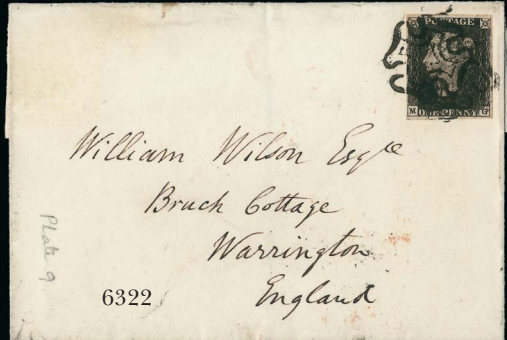 POSTAGE
ONE PENNY
M G
William Wilson Esqre
Bruch Cottage
Warrington
England
Plate 9
6322